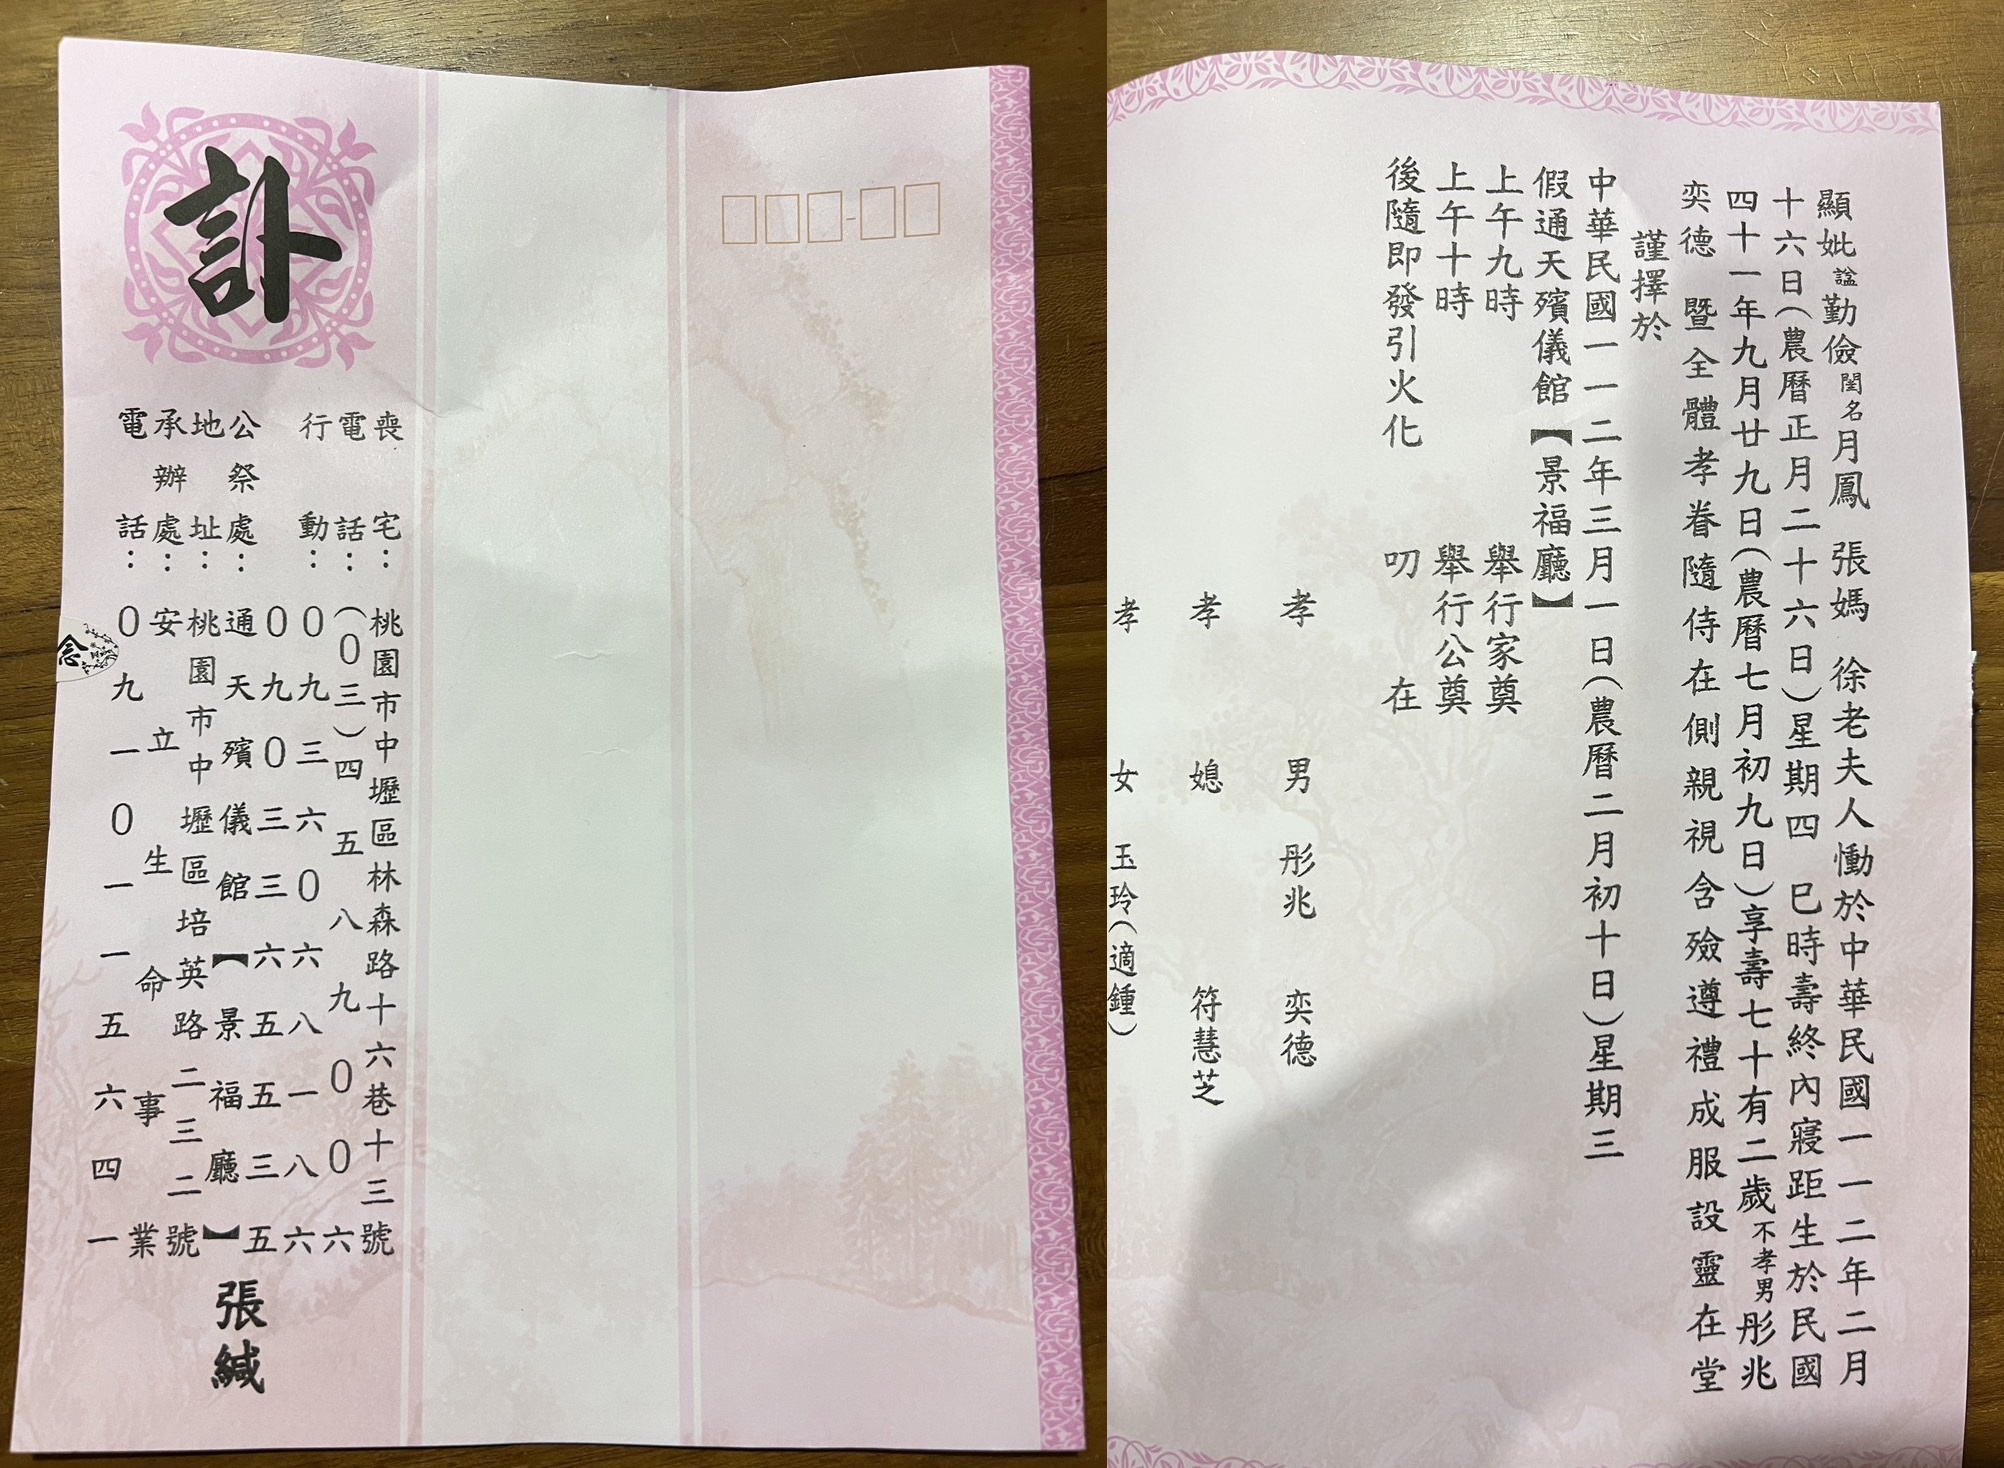 訃
喪宅：桃園市中壢區林森路十六巷十三號
電話：（０三）四五八九００六
行動：０九三六０六八一八六
０九０三三六五五三五
公祭處：通天殯儀館【景福廳】
地址：桃園市中壢區培英路二三二號
承辦處：安立生命事業
電話：０九一０一一五六四一
張緘
念
顯妣諡勤儉閨名月鳳 張媽 徐老夫人慟於中華民國一一二年二月
十六日（農曆正月二十六日）星期四 巳時壽終內寢距生於民國
四十一年九月廿九日（農曆七月初九日）享壽七十有二歲不孝男彤兆
奕德 暨全體孝眷隨侍在側親視含殮遵禮成服設靈在堂
謹擇於
中華民國一一二年三月一日（農曆二月初十日）星期三
假通天殯儀館【景福廳】
上午九時 舉行家奠
上午十時 舉行公奠
後隨即發引火化 叨在
孝男 彤兆 奕德
孝媳 符慧芝
孝女 玉玲（適鍾）